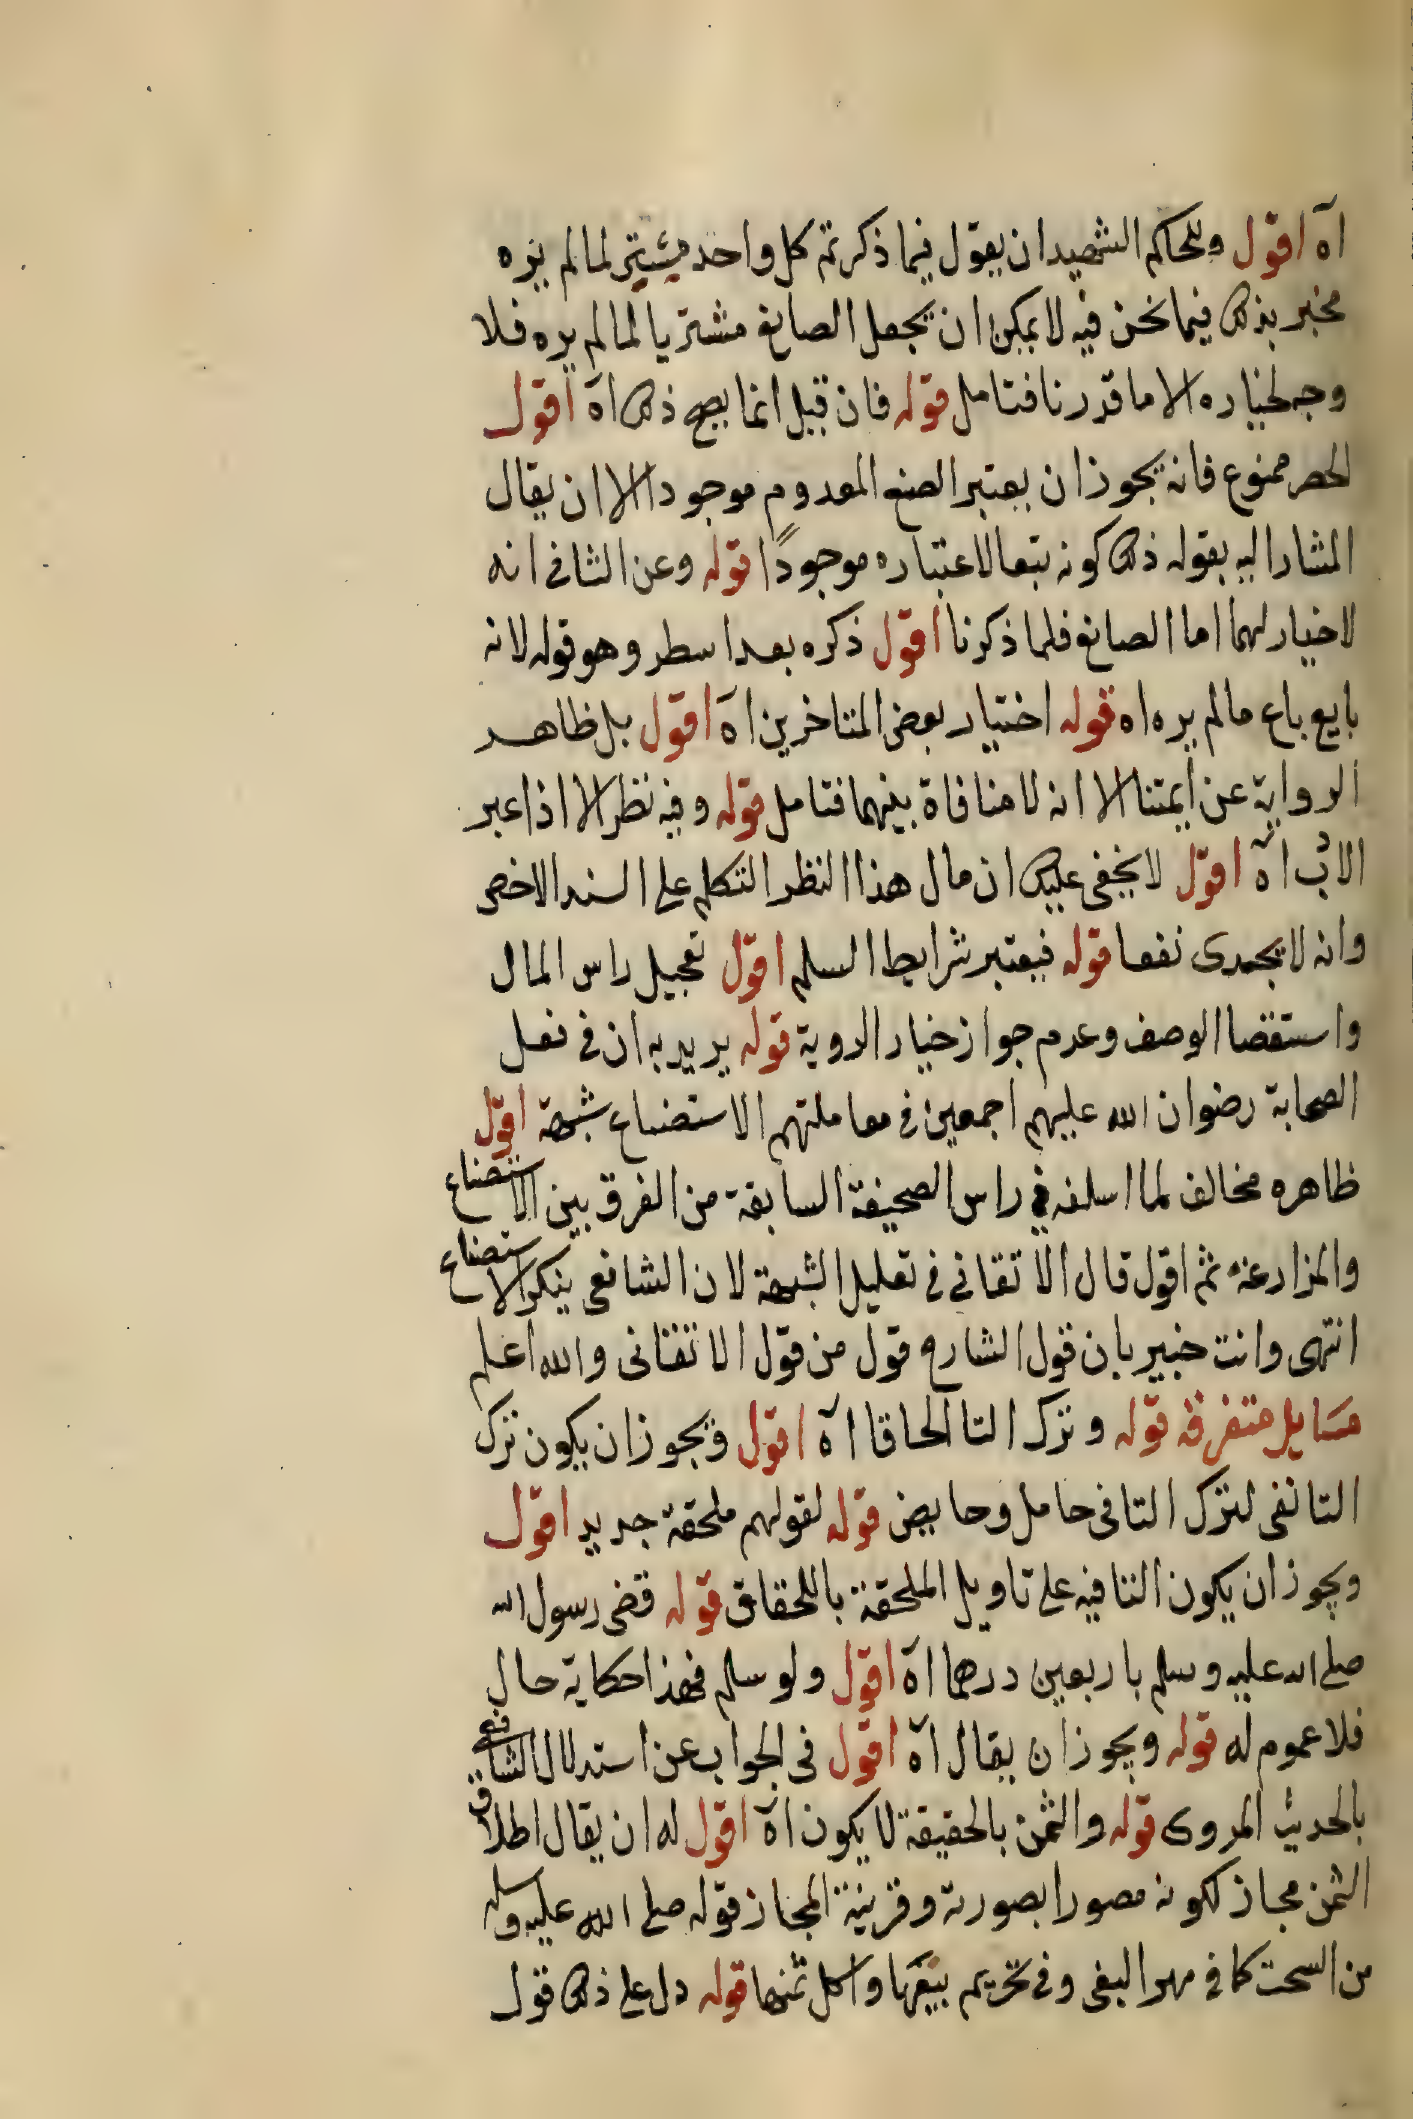 اه اقول وللحاكم الشهيد ان يقول فيما ذكرتم كل واحد مشتر لما لم يره
مخبر بذلك فيما نحن فيه لا يمكن ان يجعل الصانع مشتريا لما لم يره فلا
وجه لخياره الا ما قدرنا فتامل قوله فان قيل انما يصح ذلك اه اقول
الحصر ممنوع فانه يجوز ان يعتبر الصنع المعدوم موجودا الا ان يقال
المشار اليه بقوله ذلك كونه بتعا لاعتباره موجودًا قوله وعن الثاني انه
لا خيار لهما اما الصانع فلما ذكرنا اقول ذكره بعد اسطر وهو قوله لانه
بايع باع ما لم يره اه قوله اختيار بعض المتاخرين اه اقول بل ظاهر
الرواية عن ايمتنا الا انه لا منافاة بينهما فتامل قوله وفيه نظر الا اذا عبر
الاب اه اقول لا يخفى عليك ان مال هذا النظر التكلم على السند الاخص
وانه لا يجدى نفعا قوله فيعتبر شرايط السلم اقول تعجيل راس المال
واستقصا الوصف وعدم جواز خيار الروية قوله يريد به ان في فعل
الصحابة رضوان الله عليهم اجمعين في معاملتهم الاستصناع شبهة اقول
ظاهره مخالف لما اسلفه في راس الصحيفة السابقة من الفرق بين الاستصناع
والمزارعة ثم اقول قال الاتقاني في تعليل الشبهة لان الشافعي ينكر الاستصناع
انتهى وانت خبير بان قول الشارح قول من قول الاتقاني والله اعلم
مسايل متفرقة قوله وترك التا الحاقا اه اقول ويجوز ان يكون ترك
التا نفى لترك التا في حامل وحايض قوله لقولهم ملحقة جديد اقول
ويجوز ان يكون التا فيه على تاويل الملحقة باللحقاق قوله قضى رسول الله
صلى الله عليه وسلم باربعين درهما اه اقول ولو سلم فهذا حكاية حال
فلا عموم له قوله ويجوز ان يقال اه اقول في الجواب عن استدلال الشافعي
بالحديث المروى قوله والثمن بالحقيقة لا يكون اه اقول له ان يقال اطلاق
الثمن مجاز لكونه مصورا بصورته وقرينة المجاز قوله صلى الله عليه وسلم
من السحت كما في مهر البغى وفي تحريم بيعها واكل ثمنها قوله دل على ذلك قول